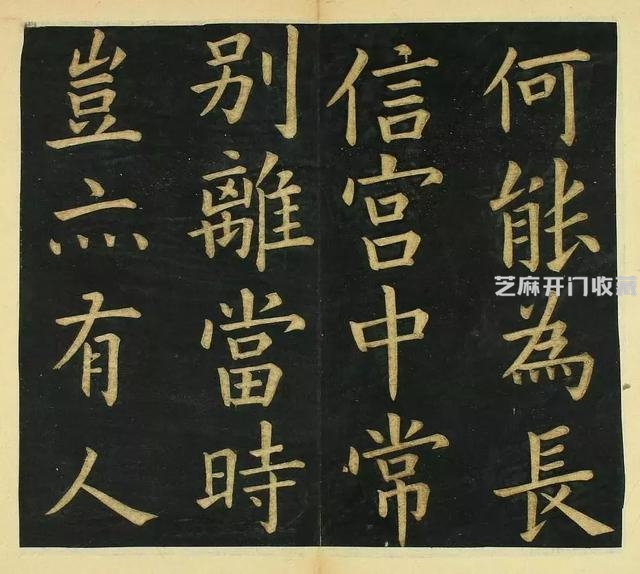 何能為長
信宮中常
别離當時
豈亦有人
芝麻开门收藏